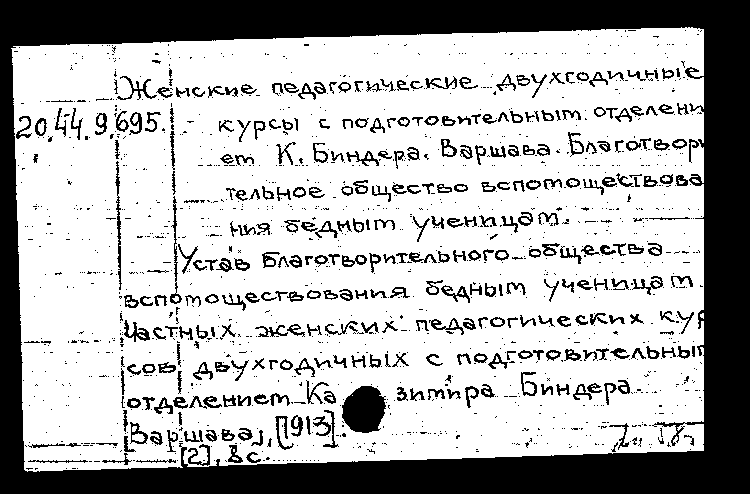 Женские педагогические двухгодичные
20.44.9.695. курсы с подготовительным отделени
ем К. Биндера. Варшава. Благотвори
тельное общество вспомоществова
ния бедным ученицам.
Устав Благотворительного общества
вспомоществования бедным ученицам
Частных женских педагогических кур
сов двухгодичных с подготовительным
отделением Казимира Биндера.
[Варшава], [1913].
[2], 8 с.